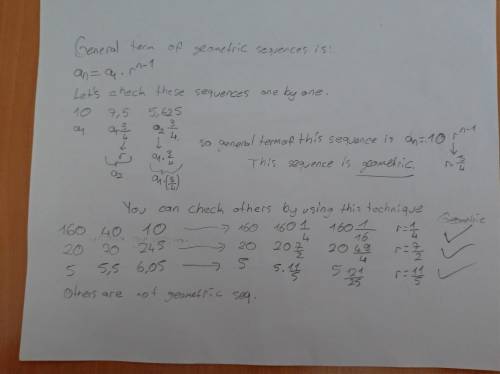 General term of geometric sequences is:
an = a1 . r^n-1
Let's check these sequences one by one.
10 7,5 5,625
a1 a1 3/4 a2 . 3/4
so general term of this sequence is an = 10 r^n-1
r a1 . 3/4 r = 3/4
This sequence is geometric
a2 a1 . (3/4)
You can check others by using this technique
Geometric
160 40 10 → 160 160 1/4 160 1/16 r = 1/4 ✓
20 30 245 → 20 20 7/2 20 49/4 r = 7/2 ✓
5 5,5 6,05 → 5 5 . 11/5 5 21/25 r = 11/5 ✓
Others are not geometric seq.